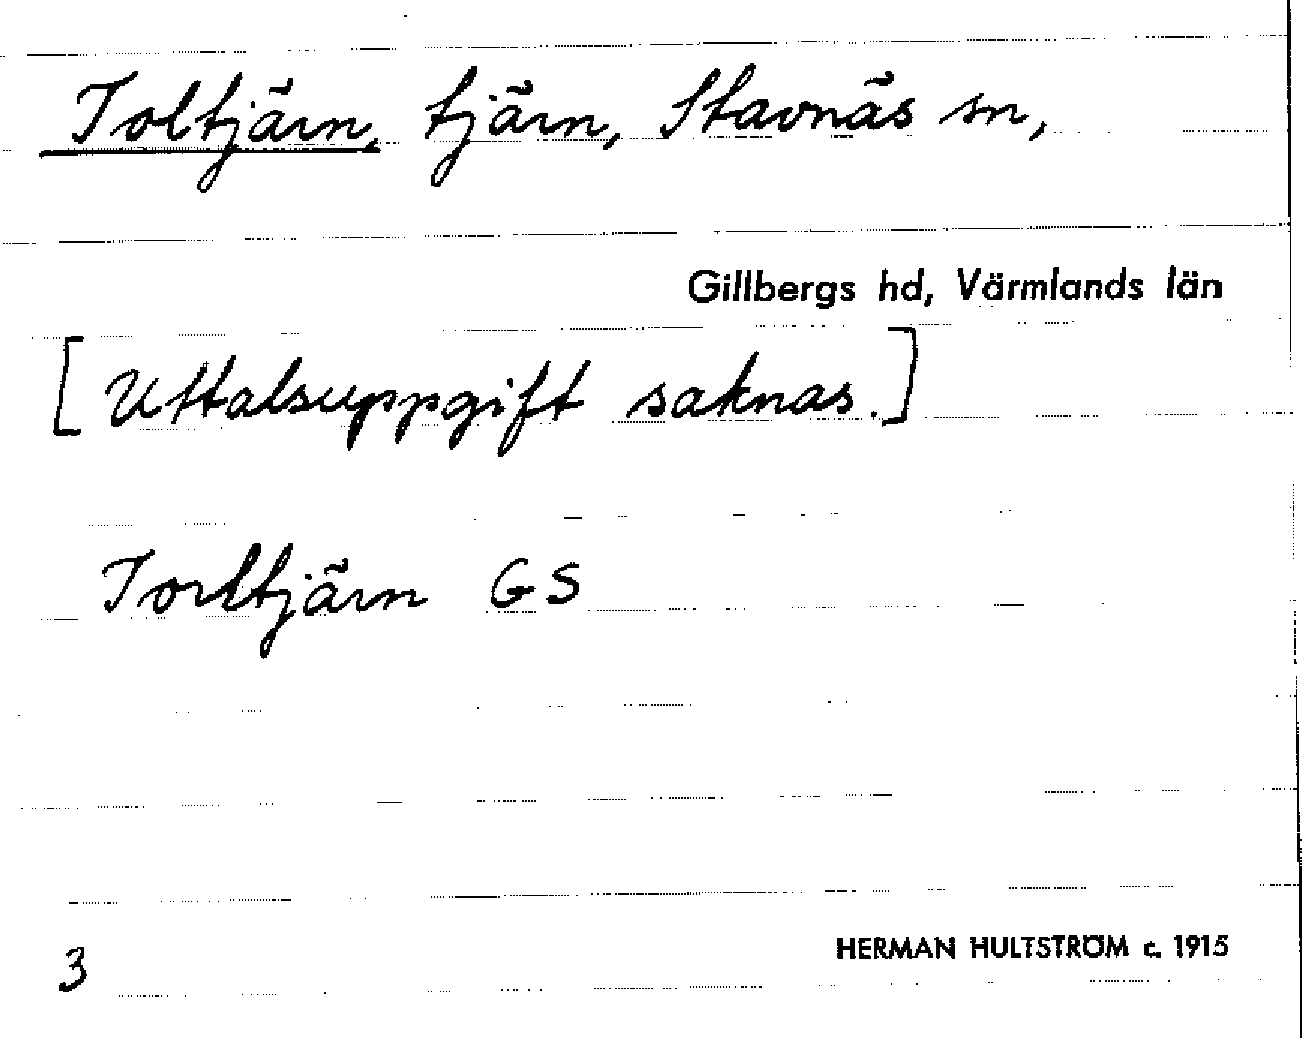 Toltjärn, tjärn, Stavnäs sn,
Gillbergs hd, Värmlands län
[Uttalsuppgift saknas.]
Torltjärn GS
3
HERMAN HULTSTRÖM c. 1915